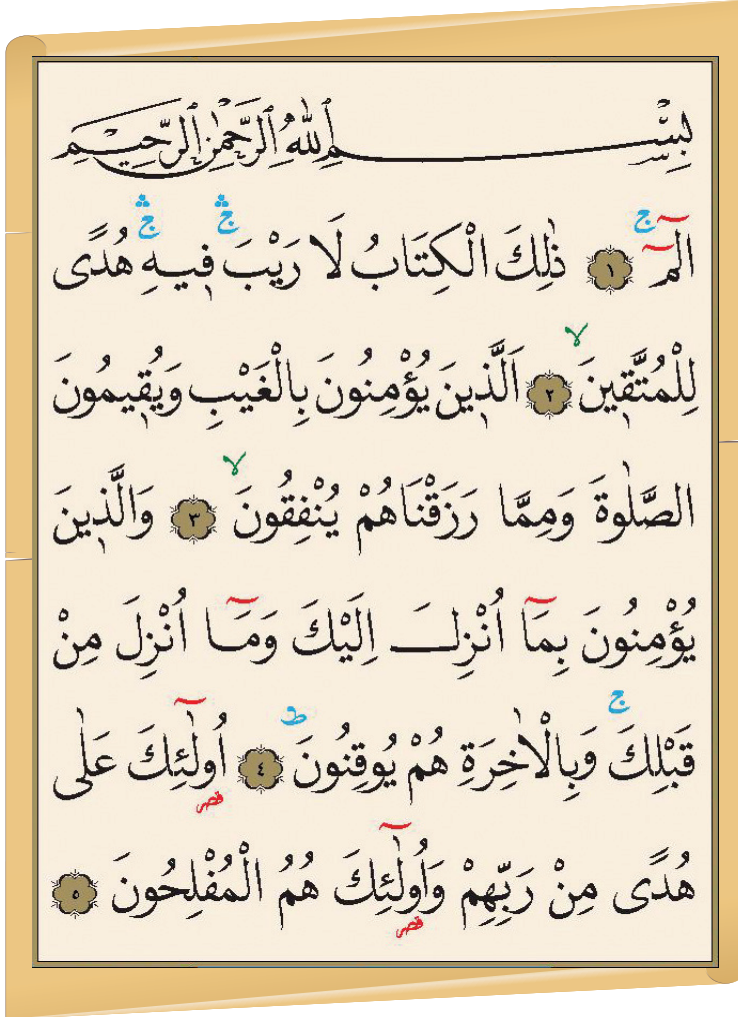 بِسْمِ اللّٰهِ الرَّحْمٰنِ الرَّحٖيمِ
الٓمٓ ۚ ﴿١﴾ ذٰلِكَ الْكِتَابُ لَا رَيْبَ ۛ فٖيهِ ۛ هُدًى
لِلْمُتَّقٖينَ ۙ ﴿٢﴾ اَلَّذٖينَ يُؤْمِنُونَ بِالْغَيْبِ وَيُقٖيمُونَ
الصَّلٰوةَ وَمِمَّا رَزَقْنَاهُمْ يُنْفِقُونَ ۙ ﴿٣﴾ وَالَّذٖينَ
يُؤْمِنُونَ بِمَٓا اُنْزِلَ اِلَيْكَ وَمَٓا اُنْزِلَ مِنْ
قَبْلِكَ ۚ وَبِالْاٰخِرَةِ هُمْ يُوقِنُونَ ؕ ﴿٤﴾ اُولٰٓئِكَ عَلٰى
قصر
هُدًى مِنْ رَبِّهِمْ وَاُولٰٓئِكَ هُمُ الْمُفْلِحُونَ ﴿٥﴾
قصر